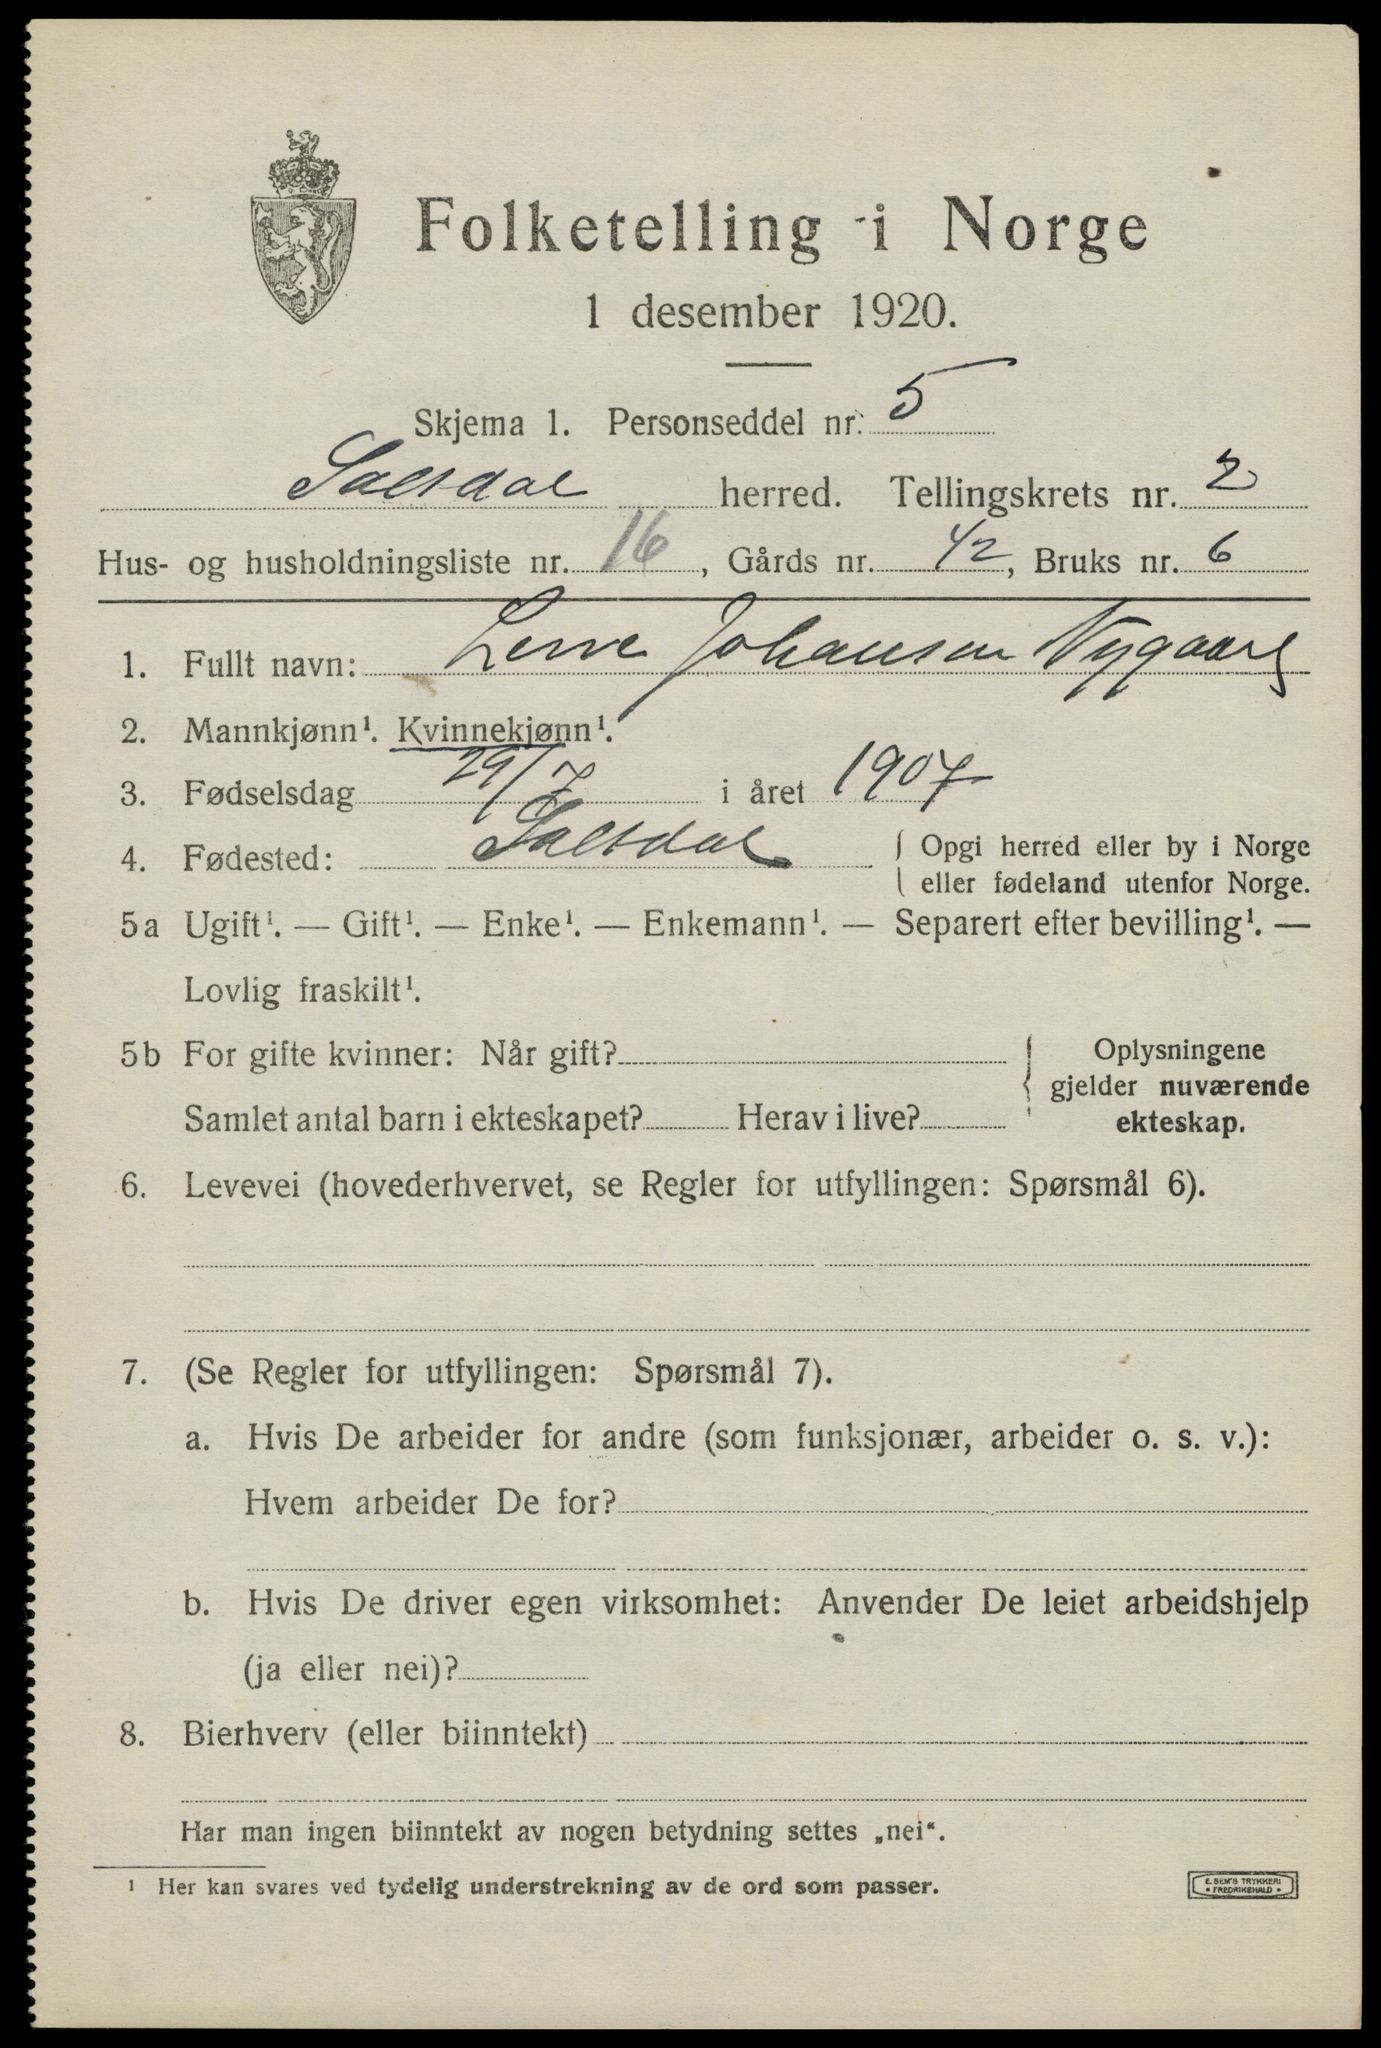 Folketelling i Norge
1 desember 1920.
Skjema 1. Personseddel nr. 5
Saltdal herred. Tellingskrets nr. 2
Hus- og husholdningsliste nr. 16, Gårds nr. 42, Bruks nr. 6
1. Fullt navn: Lene Johansen Nygaard
2. Mannkjønn¹. Kvinnekjønn¹.
3. Fødselsdag 29/7 i året 1907
4. Fødested: Saltdal { Opgi herred eller by i Norge
eller fødeland utenfor Norge.
5a Ugift¹. — Gift¹. — Enke¹. — Enkemann¹. — Separert efter bevilling¹. —
Lovlig fraskilt¹.
5b For gifte kvinner: Når gift? { Oplysningene
gjelder nuværende
Samlet antal barn i ekteskapet? Herav i live? ekteskap.
6. Levevei (hovederhvervet, se Regler for utfyllingen: Spørsmål 6).
7. (Se Regler for utfyllingen: Spørsmål 7).
a. Hvis De arbeider for andre (som funksjonær, arbeider o. s. v.):
Hvem arbeider De for?
b. Hvis De driver egen virksomhet: Anvender De leiet arbeidshjelp
(ja eller nei)?
8. Bierhverv (eller biinntekt)
Har man ingen biinntekt av nogen betydning settes „nei“.
¹ Her kan svares ved tydelig understrekning av de ord som passer.
E. SEM'S TRYKKERI
• FREDRIKSHALD •